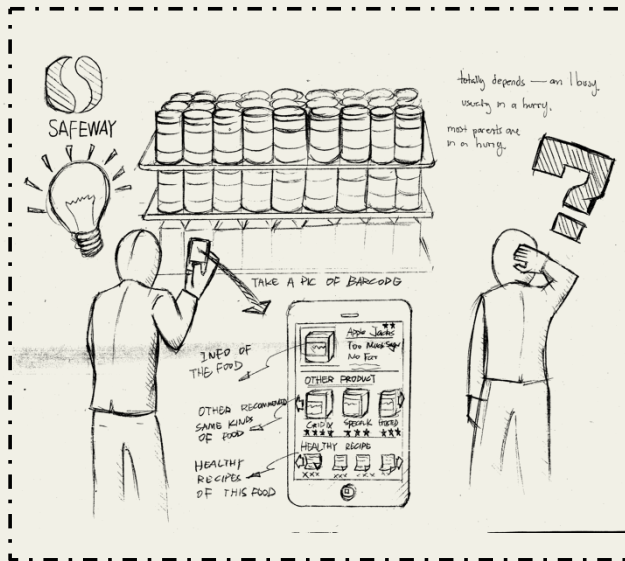 SAFEWAY
totally depends — am I busy.
usually in a hurry.
most parents are
in a hurry.
?
TAKE A PIC OF BARCODE
INFO OF
THE FOOD
OTHER RECOMMEND
SAME KINDS
OF FOOD
HEALTHY
RECIPES
OF THIS FOOD
Apple Jacks
Too Much Sugar
No
OTHER PRODUCT
Special K
HEALTHY RECIPE
XXX XXX XXX